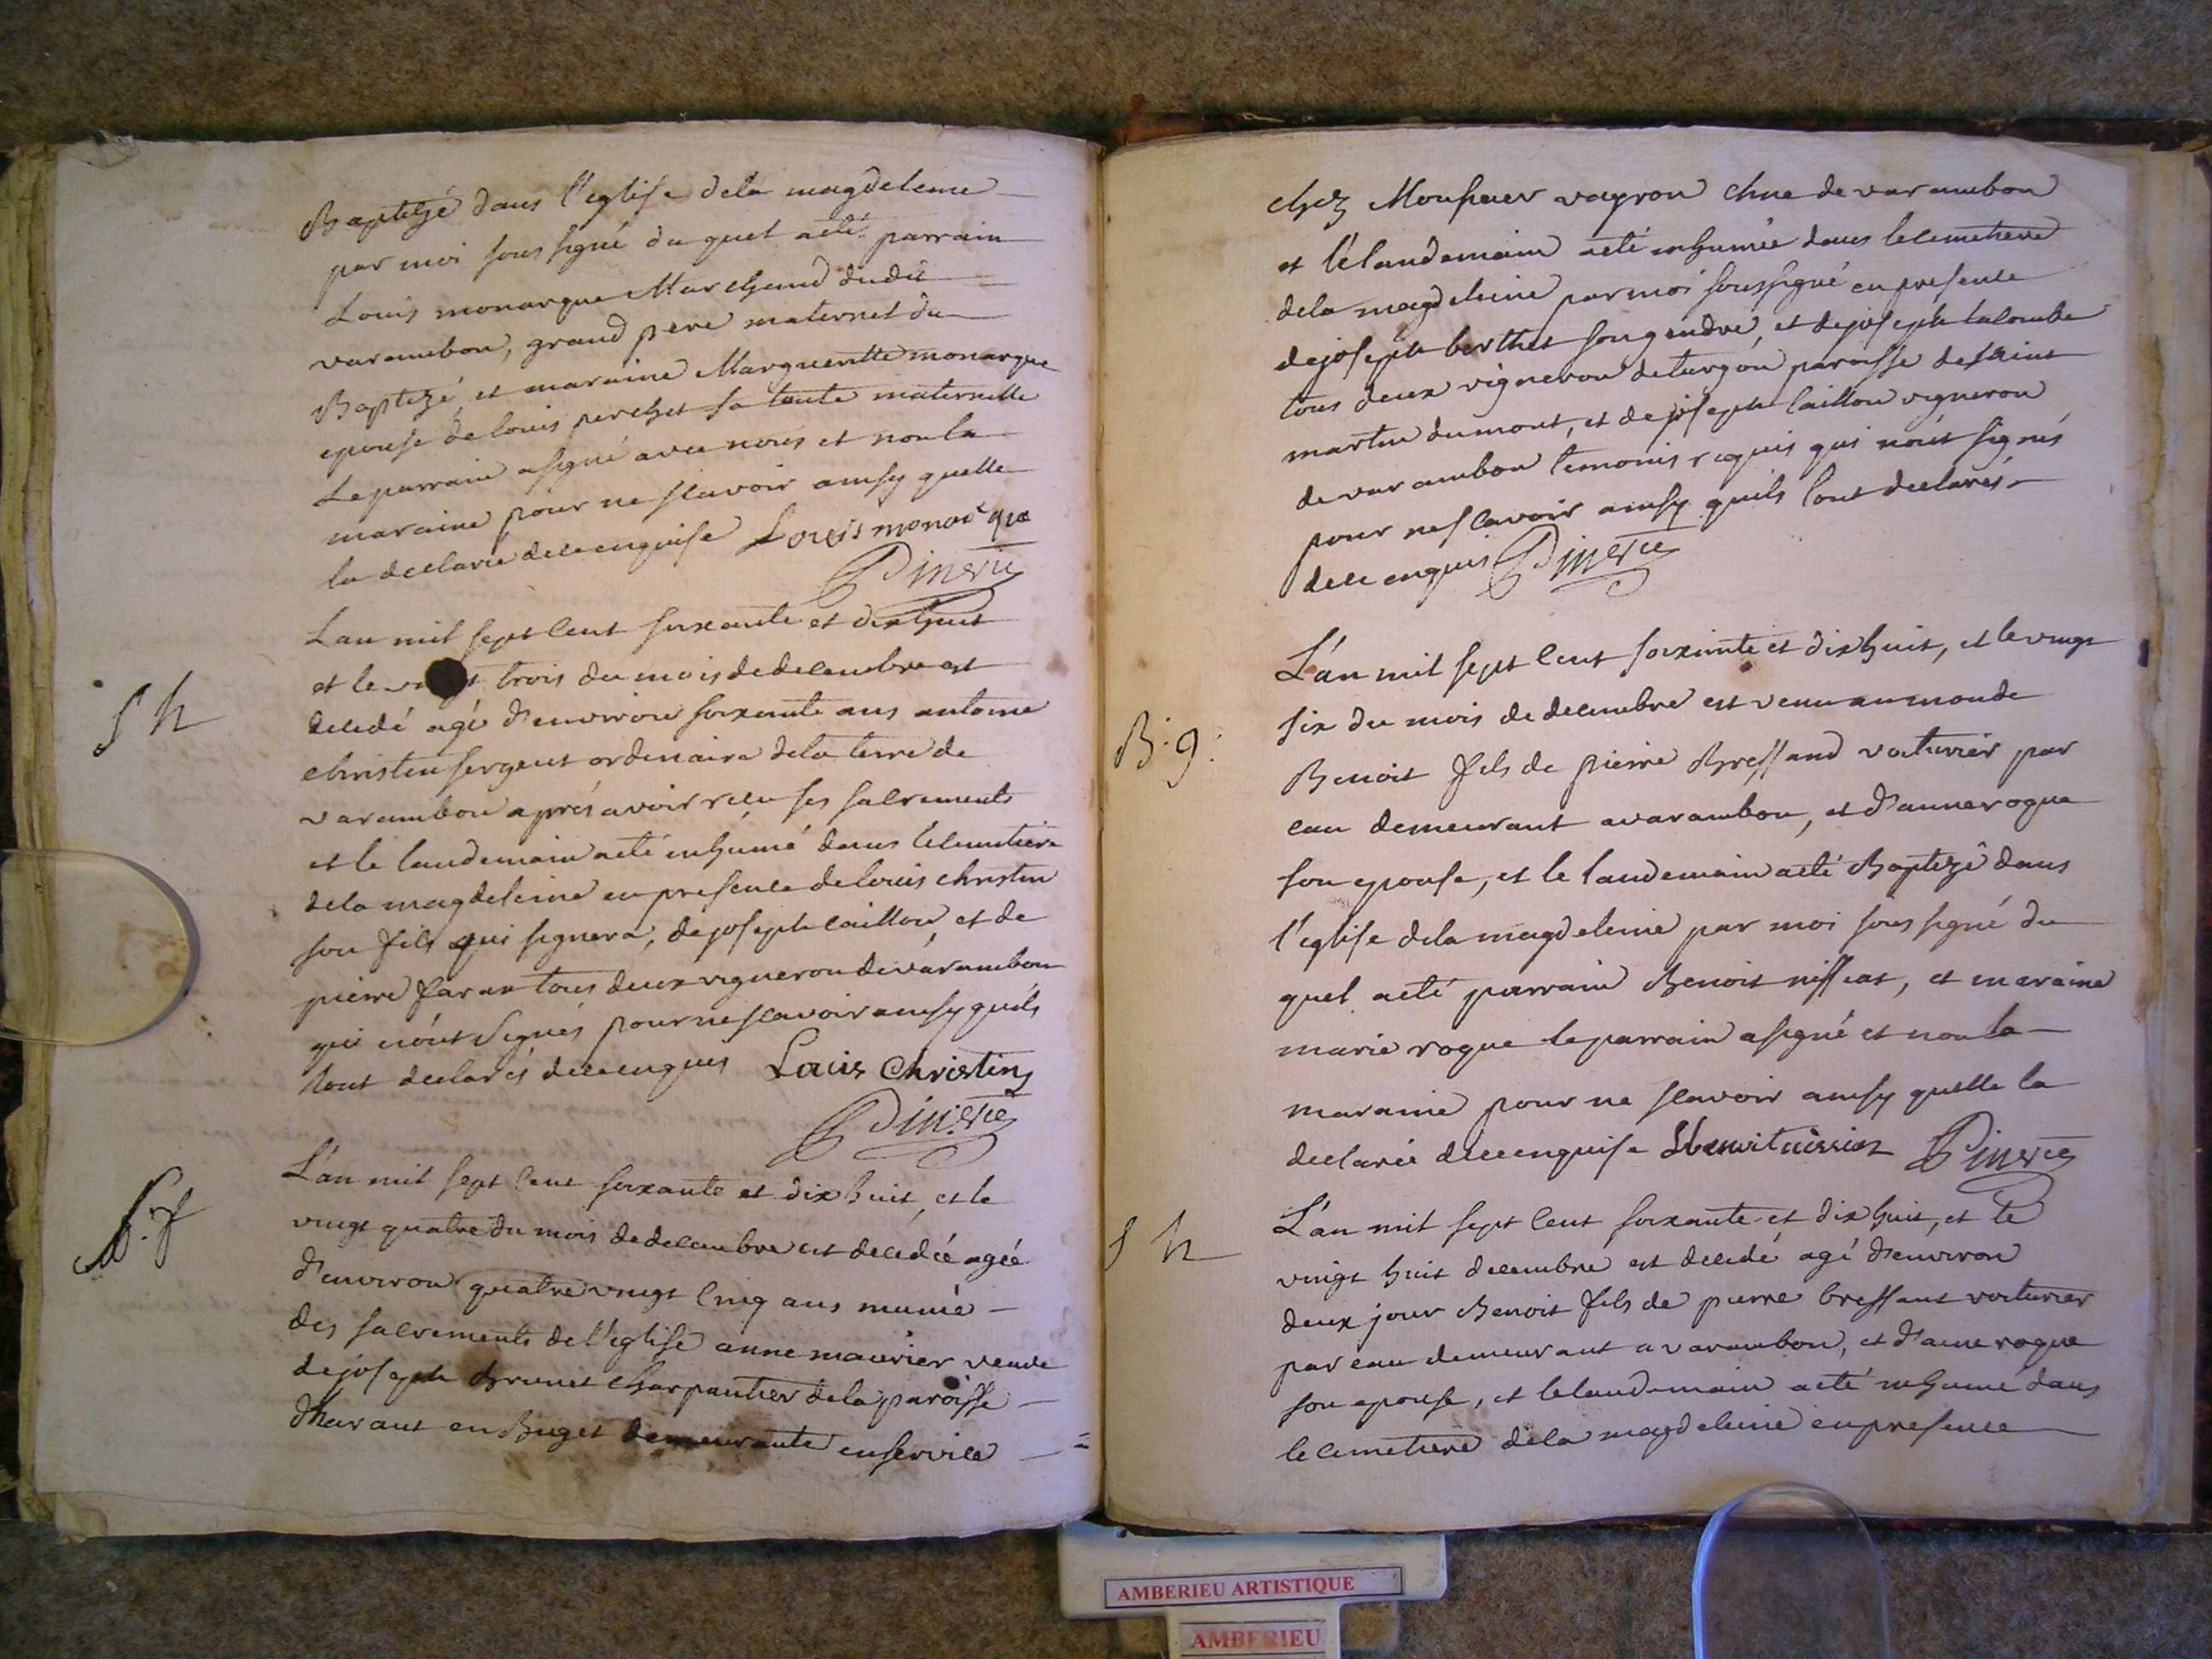 Baptizé dans l'eglise dela magdeleine
par moi sous signé du quel aeté parrain
Louis monarque Marchand dudit
varambon, grand pere maternel du
Baptizé et maraine Margueritte monarque
epouse de louis perchet sa tante maternelle
Le parrain asigné avec nous et non la
maraine pour ne scavoir ainsy quelle
la declarée dece enquise Louis monarque
Dinerie
Lan mil sept cent soixante et dixhuit
et le vingt trois du mois de decembre est
decedé agé d'environ soixante ans antoine
christin sergent ordinaire dela terre de
varambon aprés avoir reçu ses sacrements
et le landemain aeté inhumé dans le cemetiere
dela magdeleine en presence de louis christin
son fils qui signera, de joseph caillon, et de
pierre favan tous deux vigneron de varambon
qui n'ont signés pour ne scavoir ainsy quils
lont declarés dece enquis Louis Christin
Dinerie
S h
L'an mil sept cent soixante et dix huit, et le
vingt quatre du mois de decembre est decedée agée
d'environ quatre vingt cinq ans munie
des sacrements de l'eglise anne maurier veuve
de joseph Brunet Charpantier de la paroisse
en Buget demeurante en service
S. f
chez Monsieur vayron chne de varambon
et le landemain aeté inhumée dans le cemetiere
dela magdeleine par moi soussigné en presence
de joseph berthet son gendre, et de joseph lacombe
tous deux vigneron de turgon paroisse de saint
martin du mont, et de joseph caillon vigneron
de varambon temoins requis qui n'ont signés
pour ne scavoir ainsy quils lont declarés
dece enquis Dinerie
L'an mil sept cent soixante et dixhuit, et le vingt
six du mois de decembre est venu au monde
Benoit fils de pierre Bressand voiturier par
eau demeurant a varambon, et d'anne rogue
son epouse, et le landemain aeté Baptizé dans
l'eglise dela magdeleine par moi sous signé du
quel aeté parrain Benoit nissias, et maraine
marie rogue le parrain asigné et non la
maraine pour ne scavoir ainsy quelle la
declarée dece enquise Dinerie
B. g.
L'an mil sept cent soixante et dix huit, et le
vingt huit decembre est decedé agé d'environ
deux jour Benoit fils de pierre bressant voiturier
par eau demeurant a varambon, et d'anne rogue
son epouse, et le landemain aeté inhumé dans
le cemetiere dela magdeleine en presence
S h
AMBERIEU ARTISTIQUE
AMBERIEU